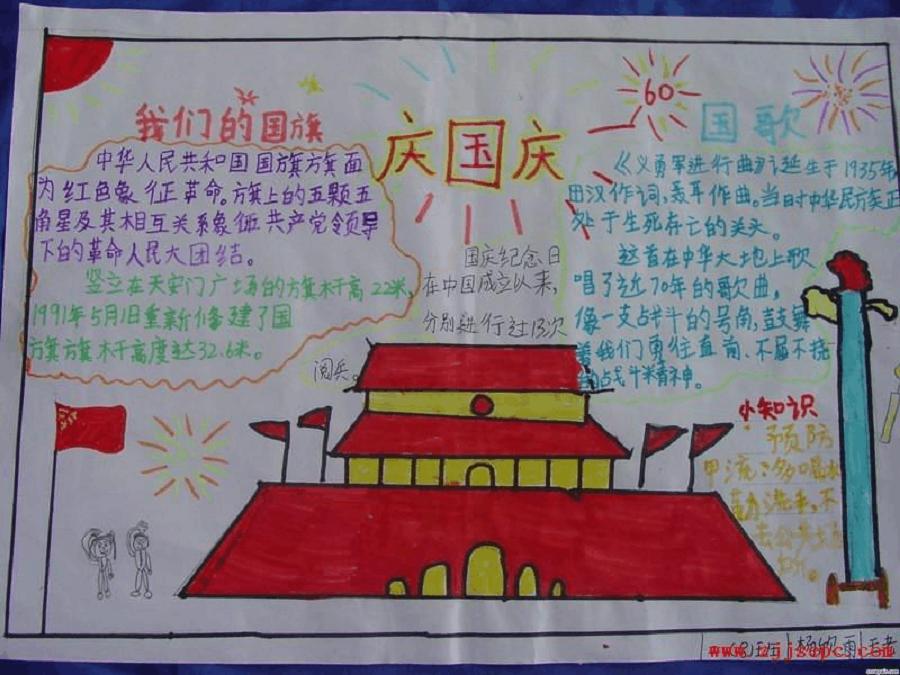 我们的国旗
中华人民共和国国旗方旗面
为红色象征革命。方旗上的五颗五
角星及其相互关系象征共产党领导
下的革命人民大团结。
竖立在天安门广场的方旗杆高22米,
1991年5月1日重新修建了国
方旗方旗杆高度达32.6米。
庆国庆
国庆纪念日
在中国成立以来,
分别进行过13次
阅兵。
60
国歌
《义勇军进行曲》诞生于1935年,
田汉作词,聂耳作曲。当时中华民族正
处于生死存亡的关头。
这首在中华大地上歌
唱了近70年的歌曲,
像一支战斗的号角,鼓舞
着我们勇往直前、不屈不挠
战斗精神。
小知识
预防
甲流:多喝水
不
去公共
所。
班